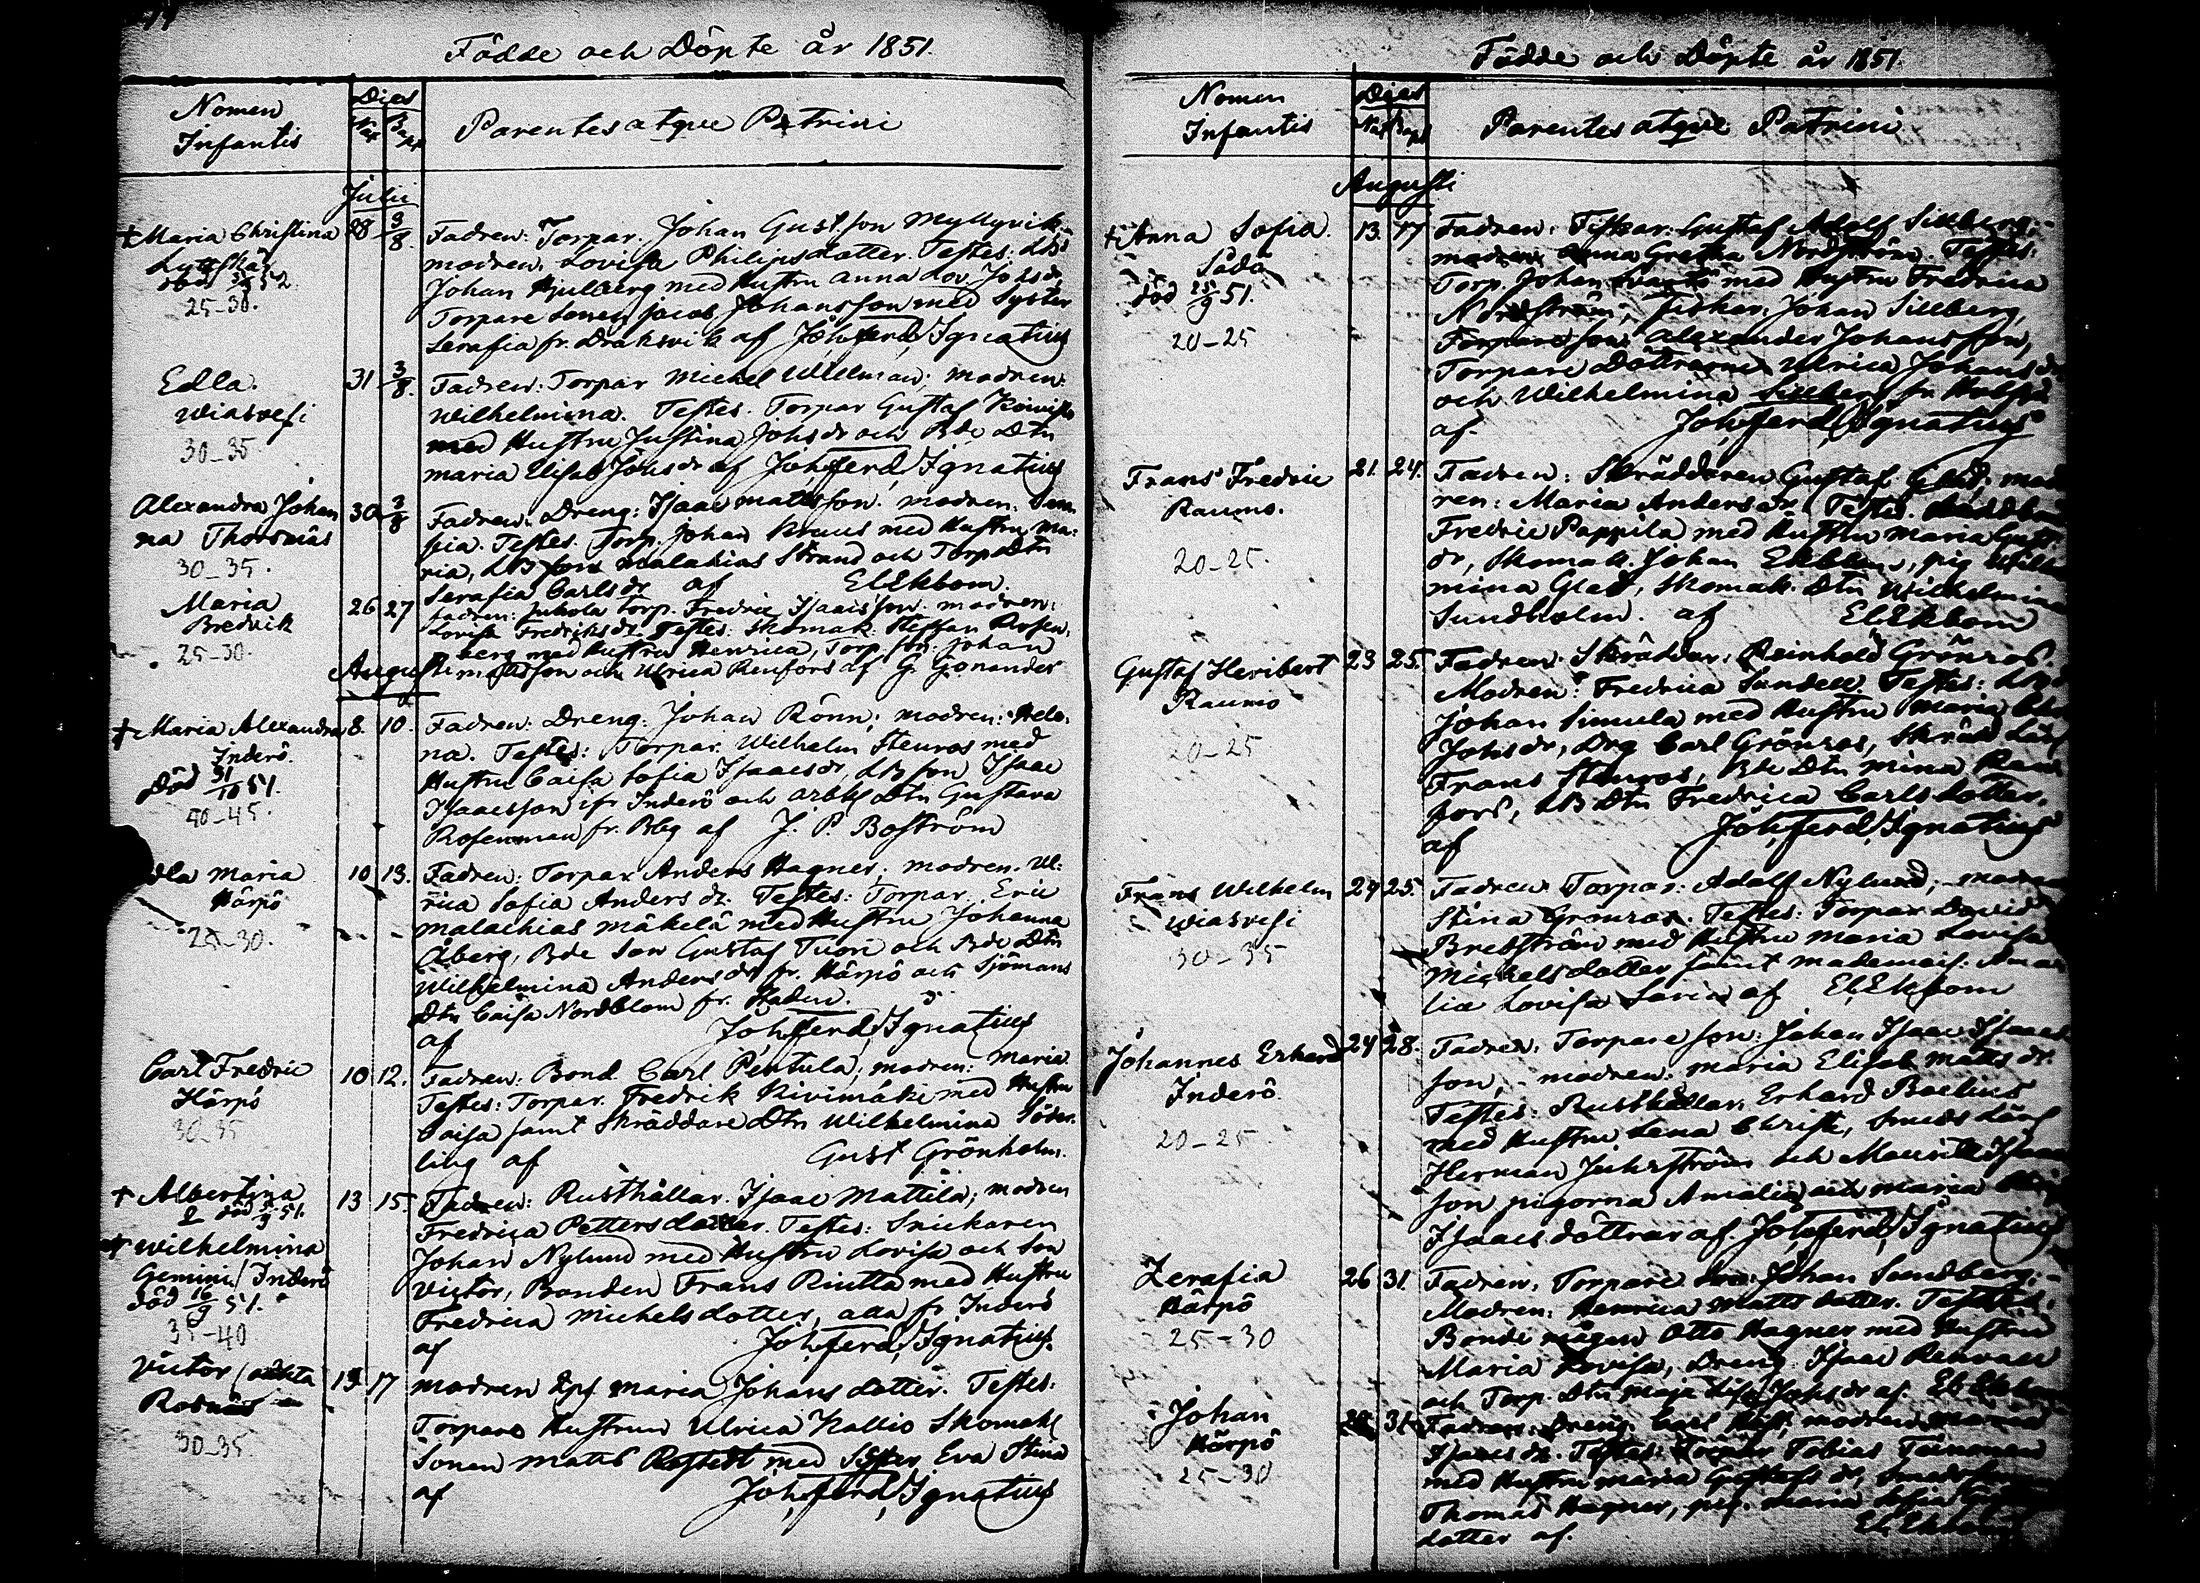 Födde och Döpte år 1851.
Nomen
Infantis
Dies
Nat
Bapt
Parentes atque Patrini
Julii
† Maria Christina
25-30.
28 3/8.
Fadren: Torpar. Johan Gust.son Myllyvik
modren. Lovisa Philipsdotter. Testes:
Johan med Hustru Anna Lov. Johsdr,
Torpare Sonen Jacob Johansson med Syster
Serafia fr. Draksvik af Joh. Ferd. Ignatius
Edla.
Wiasvesi
30-35
31 3/8.
Fadren: Torpar Michel Willman; modren:
Wilhelmina. Testes. Torpar Gustaf Koivisto
med Hustru Justina Johsdr och Bde Dtn
Maria Elisab Johsdr af Joh. Ferd. Ignatius
Alexandra Johan
na Thorsnäs
30-35.
30 3/8
Fadren. Dreng: Isaac Mattsson. modren.
Testes. Torp. Johan med Hustru Ma-
ria, Malakias Strand och Torp Dtn
Serafia Carlsdr af El. Ekbom.
Maria
Bredvik
25-30.
26 27
Fadren: Torp. Fredric Isaacsson. modren:
Lovisa Fredriksdr. Testes: Skomak. Steffan Rosen
berg med Hustru Henrica, Torp. son Johan
Mattsson och Ulrica Renfors af G. Gonander
Augusti
† Maria Alexandra
Inderö.
död 31/10 51.
40-45.
8. 10.
Fadren: Dreng: Johan Rönn; modren: Hele-
na. Testes: Torpar. Wilhelm Stenros med
Hustru Caisa Sofia Isaacsdr, son Isaac
Isaacsson ifr Inderö och Dtn Gustava
Rosenman fr. Bbg af J. P. Boström
Maria
Härpö
25-30.
10 13.
Fadren: Torpar Anders Hagner; modren. Ul-
rica Sofia Andersdr. Testes: Torpar. Eric
Malachias Mäkelä med Hustru Johanna
Åberg, Bde Son Gustaf Tuori och Bde Dtn
Wilhelmina Andersdr fr. Härpö och Sjömans
Dtn Caisa Nordblom fr.
af Joh. Ferd. Ignatius
Carl Fredric
Härpö
30-35
10 12.
Fadren: Bond. Carl Pentula; modren: Maria
Testes: Torpar. Fredrik Kivimäki med Hustru
Caisa samt Skräddare Dtn Wilhelmina Söder-
ling af Gust Grönholm.
† Albertina
† Wilhelmina
Gemini / Inderö
död 16/9 51.
35-40
13 15.
Fadren: Rusthållar. Isaac Mattila; modren
Fredrica Pettersdotter. Testes: Snickaren
Johan Nylund med Hustru Lovisa och Son
Victor, Bonden Frans Riutta med Hustru
Fredrica Michelsdotter, alla fr. Inderö
af Joh. Ferd. Ignatius.
Victor / oäkta
Rodnäs
30-35
17
modren Maria Johansdotter. Testes:
Torpare Hustrun Ulrica Kallio Skomak
Sonen Matts med Syster Eva Stina
af Joh. Ferd. Ignatius
Födde och Döpte år 1851.
Nomen
Infantis
Dies
Nat Bapt
Parentes atque Patrini
Augusti
† Anna Sofia.
Sådö
död 25/9 51.
20-25
13. 17
Fadren: Fiskar. Gustaf Adolf Sillberg;
modren Anna Gretha Nordström. Testes:
Torp. Johan med Hustru Fredrica
Nordström, Fiskar. Johan Sillberg,
Torpare son Alexander Johansson,
Torpare Döttrarne Ulrica Johansdr
och Wilhelmina Sillberg fr.
af Joh. Ferd. Ignatius
Frans Fredric
Raumo.
20-25.
21. 24.
Fadren: Skräddaren Gustaf Glad; mod
ren: Maria Andersdr. Testes.
Fredric Pappila med Hustru Maria Gust.
dr, Skomak. Johan Ekblom, pig. Wilhel
mina Glad, Skomak. Dtn Wilhelmina
Sundholm. af El. Ekbom
Gustaf Heribert
Raumo
20-25
23 25.
Fadren. Skräddar. Reinhold Grönros.
Modren: Fredrica Sundell. Testes:
Johan Simula med Hustru Maria
Johsdr, Drg Carl Grönros,
Frans Stenros, Bde Dtn Mina Ren
fors, Dtn Fredrica Carlsdotter.
af Joh. Ferd. Ignatius
Frans Wilhelm
Wiasvesi
30-35
24 25.
Fadren. Torpar: Adolf Nylund; modren
Stina Grönros. Testes: Torpar David
med Hustru Maria Lovisa
Michelsdotter samt Ama
lia Lovisa af El. Ekbom
Johannes Erhard
Inderö.
20-25
24 28.
Fadren. Torpare son: Johan Isaac Isaacs
son, modren: Maria Elisab Mattsdr.
Testes: Rusthållar. Erhard Boelius
med Hustru Lena Christ.,
Herman och Mauritz Isaacs
son pigorna Amalia och Maria
Isaacs döttrar af. Joh. Ferd. Ignatius
Zerafia
Härpö
25-30
26 31.
Fadren. Torpare Son: Johan Sundberg;
Modren: Henrica Mattsdotter. Testes:
Bonde mågen Otto Hagner med Hustru
Maria Lovisa, Dreng Isaac
och Torp. Dtn Maja Johsdr af. El. Ekbom
Johan
Härpö
25-30
31.
Fadren: Dreng Carl modren Maria
Isaacsdr. Testes: Torpar Tobias
med Hustru Maria Gustafsdr,
Thomas Hagner, pig. Maria
dotter af. El. Ekbom